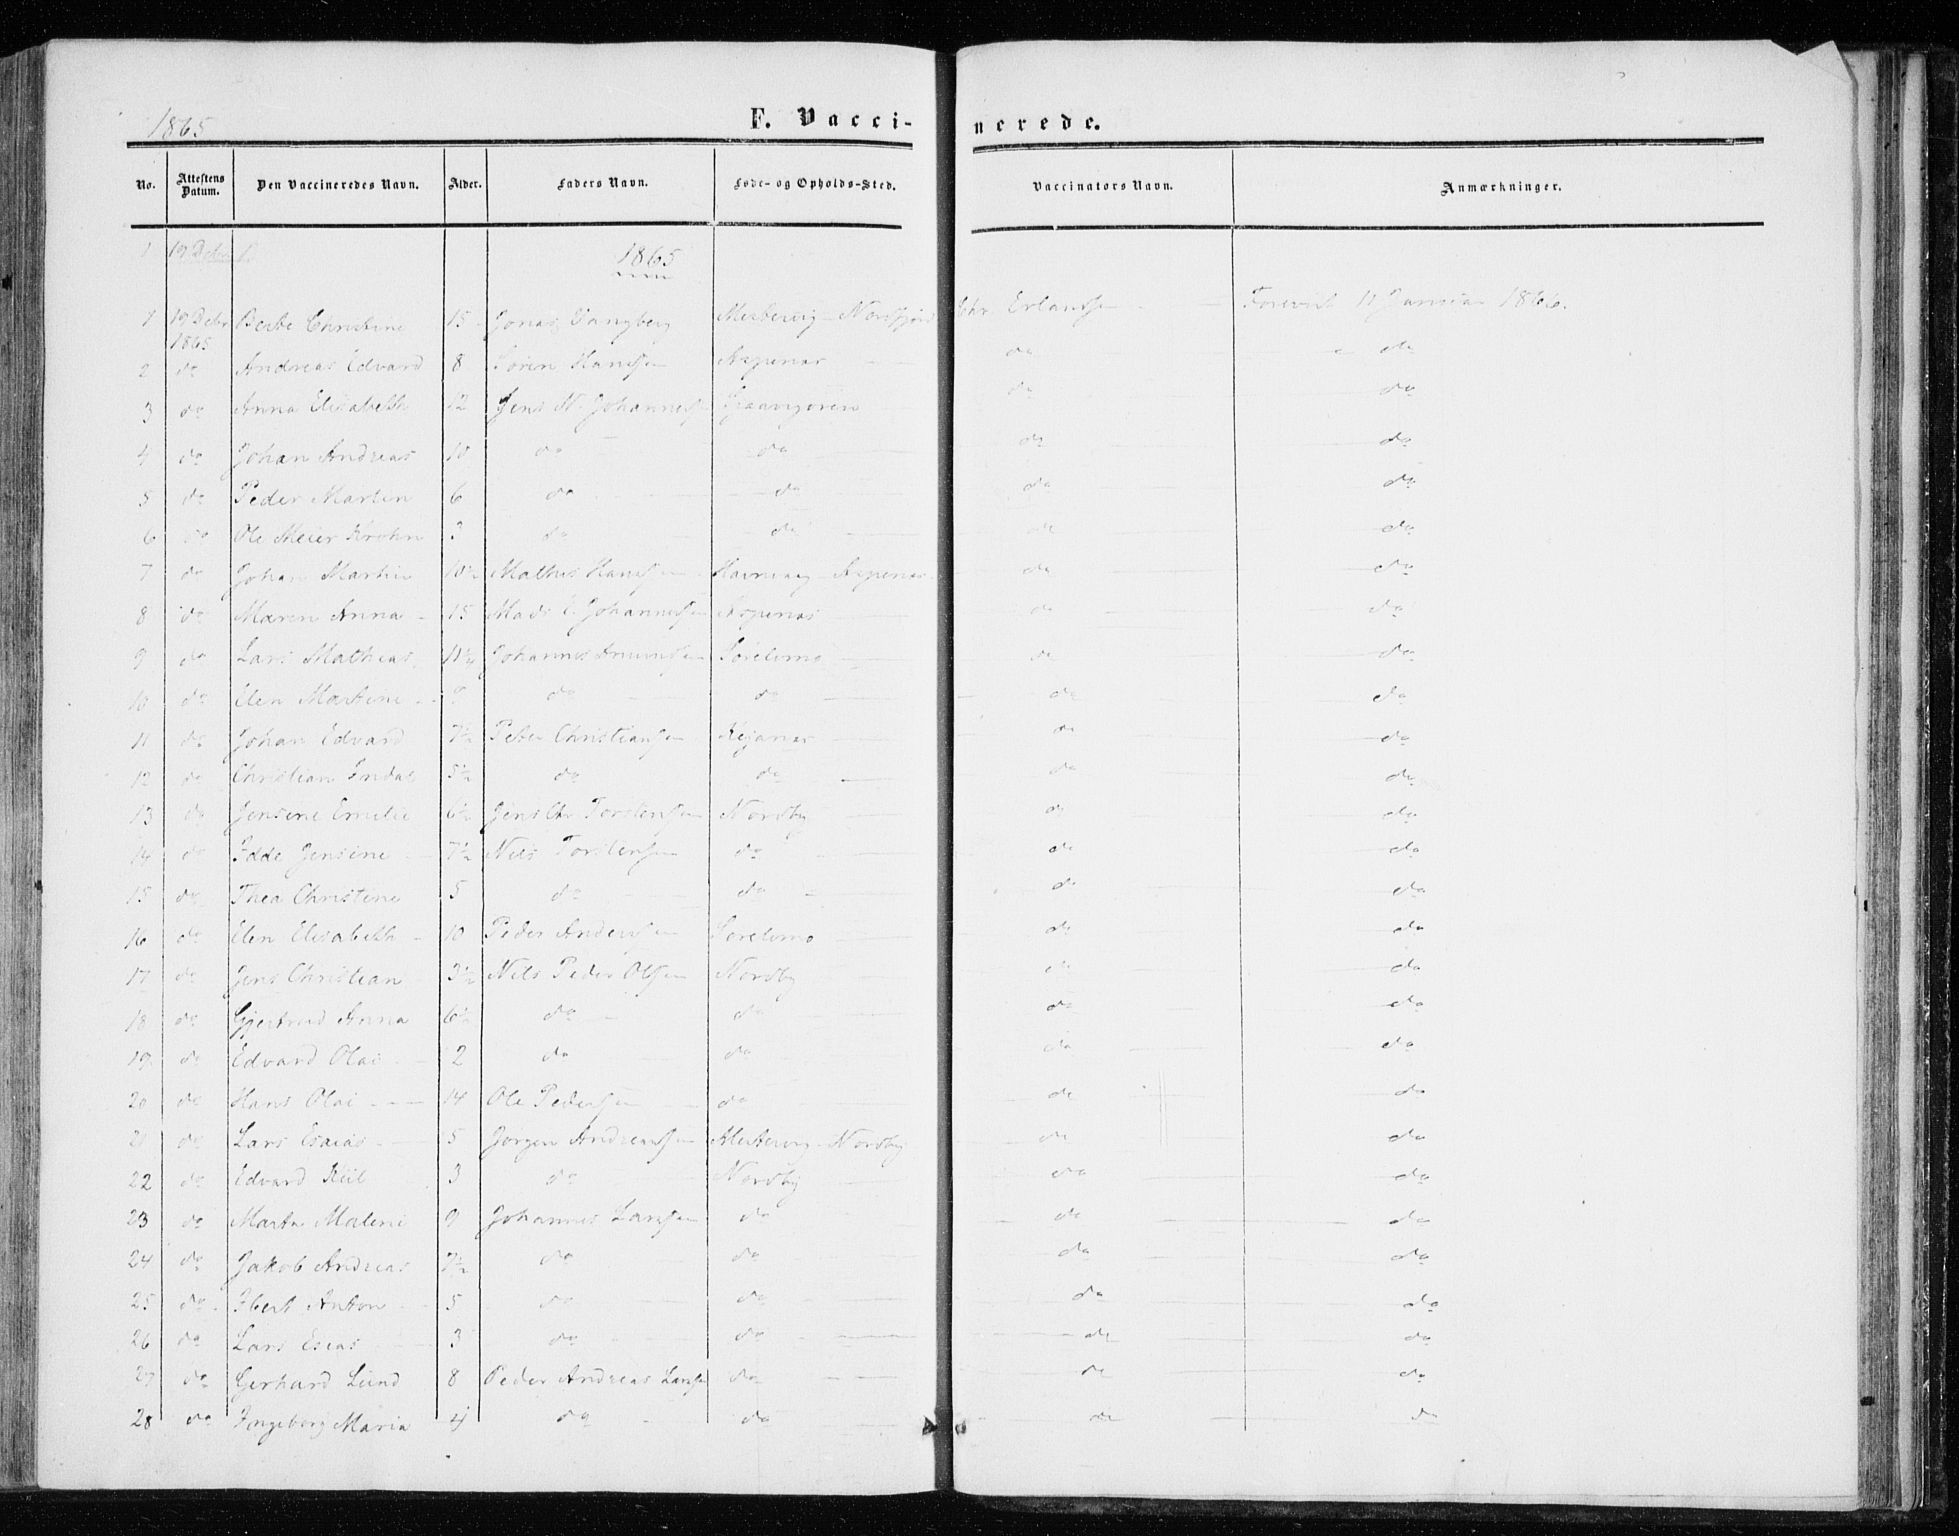 1865 F. Vacci- nerede.
No. Attestens Datum. Den Vaccineredes Navn. Alder. Faders Navn. Føde- og Opholds-Sted. Vaccinators Navn. Anmærkninger.
1 19 Debr
1865
1 19 Debr 1865 Berte Christine 15 Jonas Vangberg Nordfjord Chr. Erlandsen Forevist 11 Januar 1866.
2 do Andreas Edvard 8 Sören Hanssen Aspenes do do
3 do Anna Elisabeth 12 Jens N. Johannessen do do
4 do Johan Andreas 10 do do do do
5 do Peder Martin 6 do do do do
6 do Ole Meier Krohn 3 do do do do
7 do Johan Martin 10½ Mathis Hanssen Aspenes do do
8 do Maren Anna 15 Mads E. Johannessen Aspenes do do
9 do Lars Mathias 11¼ Johannes Amundsen Sörelvmo do do
10 do Elen Martine do do do do
11 do Johan Edvard 7½ Peter Christiansen do do
12 do Christian Indal 5½ do do do do
13 do Jensine Emilie 6½ Jens Chr Torstensen Nordby do do
14 do Idde Jensine 7½ Nils Torstensen do do do
15 do Thea Christine 5 do do do do
16 do Elen Elisabeth 10 Peder Andersen Sörelvmo do do
17 do Jens Christian 3½ Nils Peder Olsen Nordby do do
18 do Gjertrud Anna 6½ do do do do
19 do Edvard Olai 2 do do do do
20 do Hans Olai 14 Ole Pedersen do do do
21 do Lars Esaias 5 Jörgen Andreassen Nordby do do
22 do Edvard Kiil 3 do Nordby do do
23 do Marta Malene 9 Johannes Larssen do do do
24 do Jakob Andreas 7½ do do do do
25 do Ibert Anton 5 do do do do
26 do Lars Esias 3 do do do do
27 do Gerhard Lund 8 Peder Andreas Larssen do do do
28 do Ingeborg Maria 4 do do do do